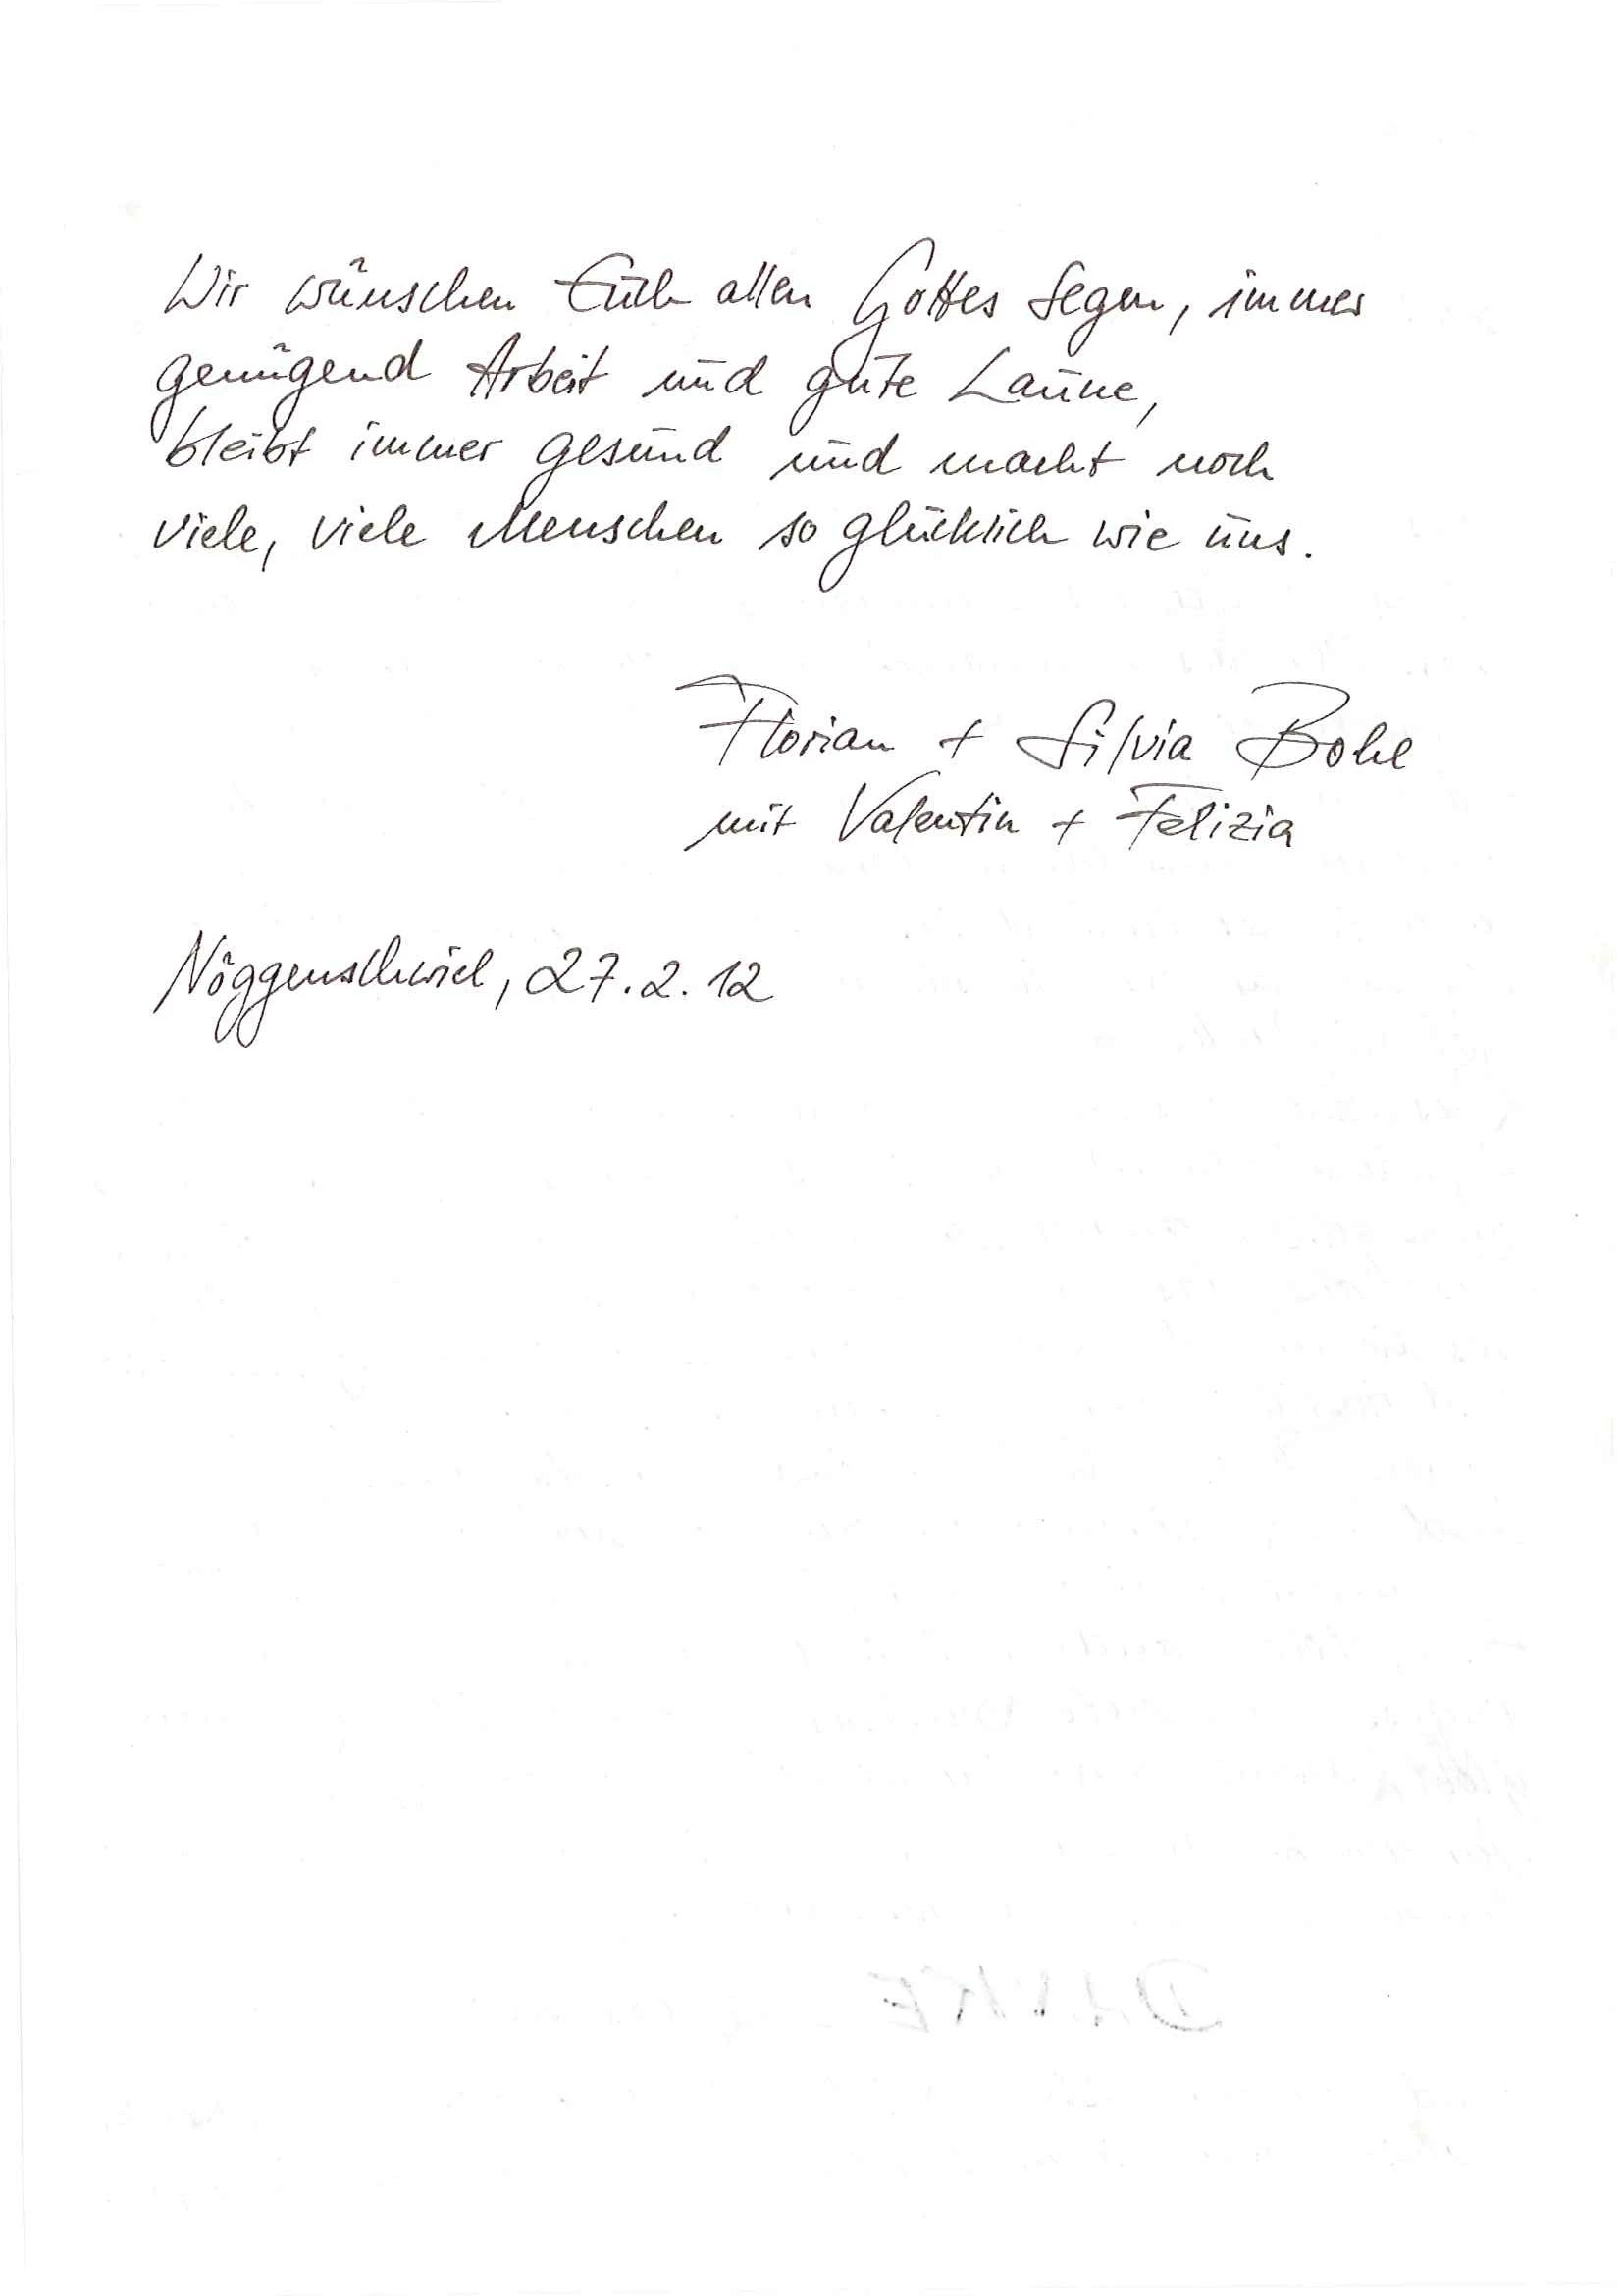 Wir wünschen Euch allen Gottes Segen, immer
genügend Arbeit und gute Laune,
bleibt immer gesund und macht noch
viele, viele Menschen so glücklich wie uns.
Florian + Silvia Bohl
mit Valentin + Felizia
Nöggenschwiel, 27.2.12
DANKE